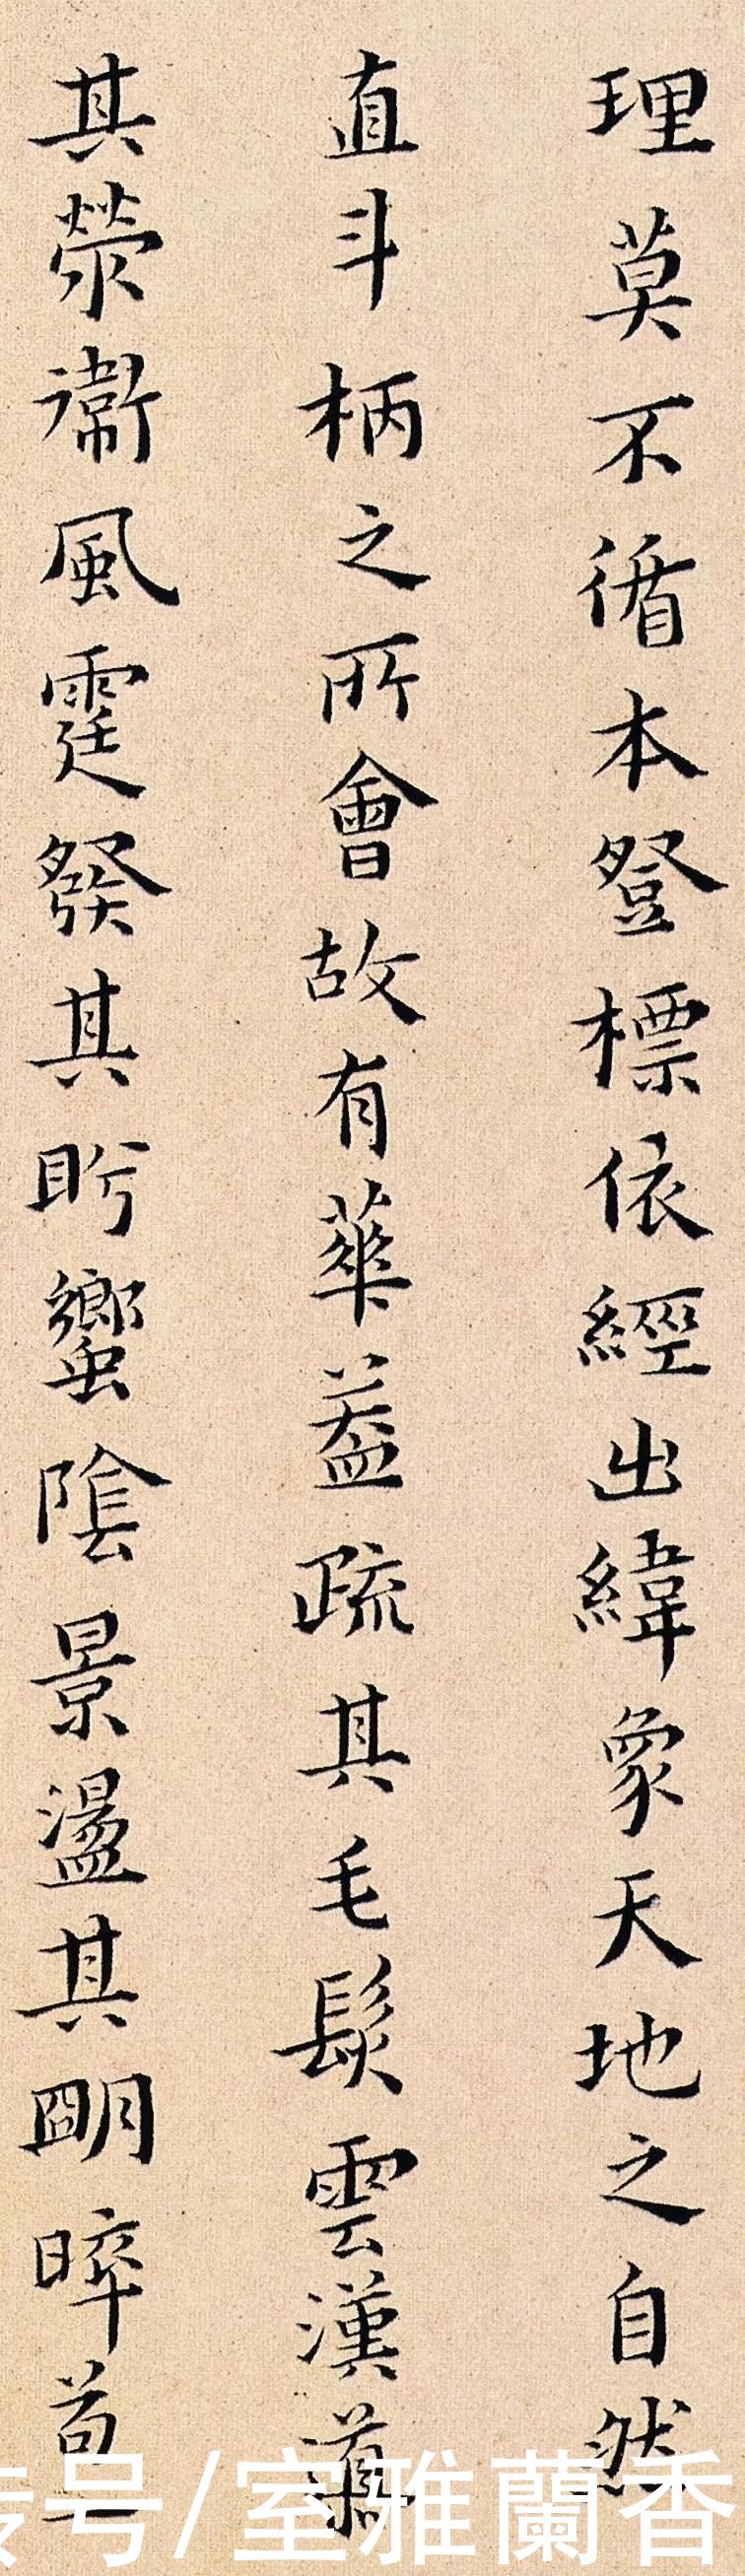 理莫不循本登標依經出緯象天地之自然
直斗柄之所會故有華蓋疏其毛髮雲漢
其滎衞風霆發其肸蠁陰景盪其朙晬
号/室雅蘭香